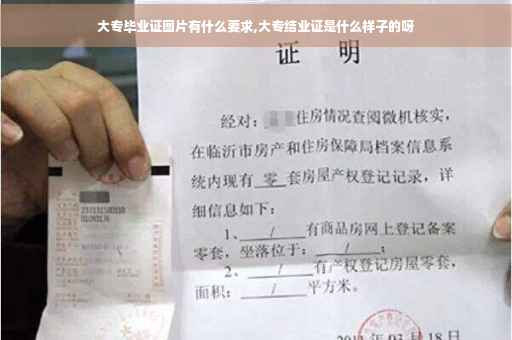 大专毕业证图片有什么要求,大专结业证是什么样子的呀
证 明
经对: 住房情况查阅微机核实,
在临沂市房产和住房保障局档案信息系
统内现有 零 套房屋产权登记记录,详
细信息如下:
1、 / 有商品房网上登记备案
零套,坐落位于: / ;
2、 / 有产权登记房屋零套,
面积: / 平方米。
03月18日